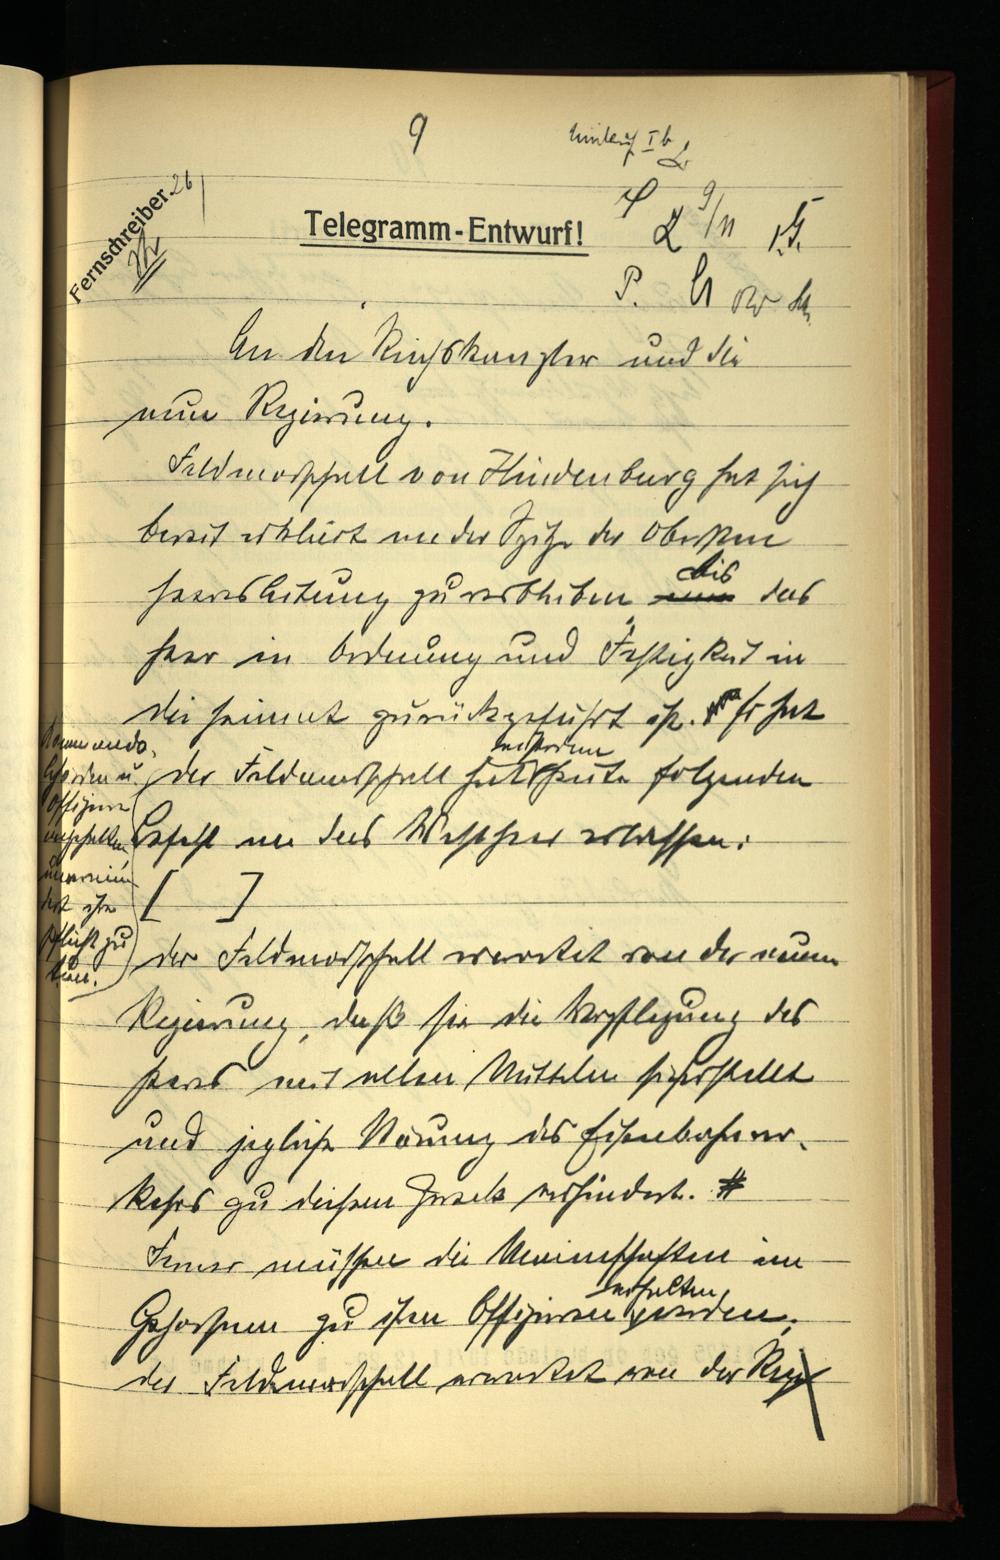 9
Umlauf Ib
Fernschreiber 26
Telegramm-Entwurf!
9/11
P.
An den Reichskanzler und die
neue Regierung.
Feldmarschall von Hindenburg hat sich
bereit erklärt an der Spitze der Obersten
Heeresleitung zu verbleiben bis das
Heer in Ordnung und Festigkeit in
die Heimat zurückgeführt ist. Er hat
der Feldmarschall hat heute folgenden
Befehl an das Westheer erlassen:
[ ]
Kommando-
behörden u.
Offiziere
angehalten,
unvermin-
dert ihre
Pflicht zu
tun.
der Feldmarschall erwartet von der neuen
Regierung, daß sie die Verpflegung des
Heeres mit allen Mitteln sicherstellt
und jegliche Störung des Eisenbahnver-
kehrs zu diesem Zweck verhindert. #
Ferner müssen die Mannschaften im
Gehorsam zu ihren Offizieren erhalten werden;
der Feldmarschall erwartet von der